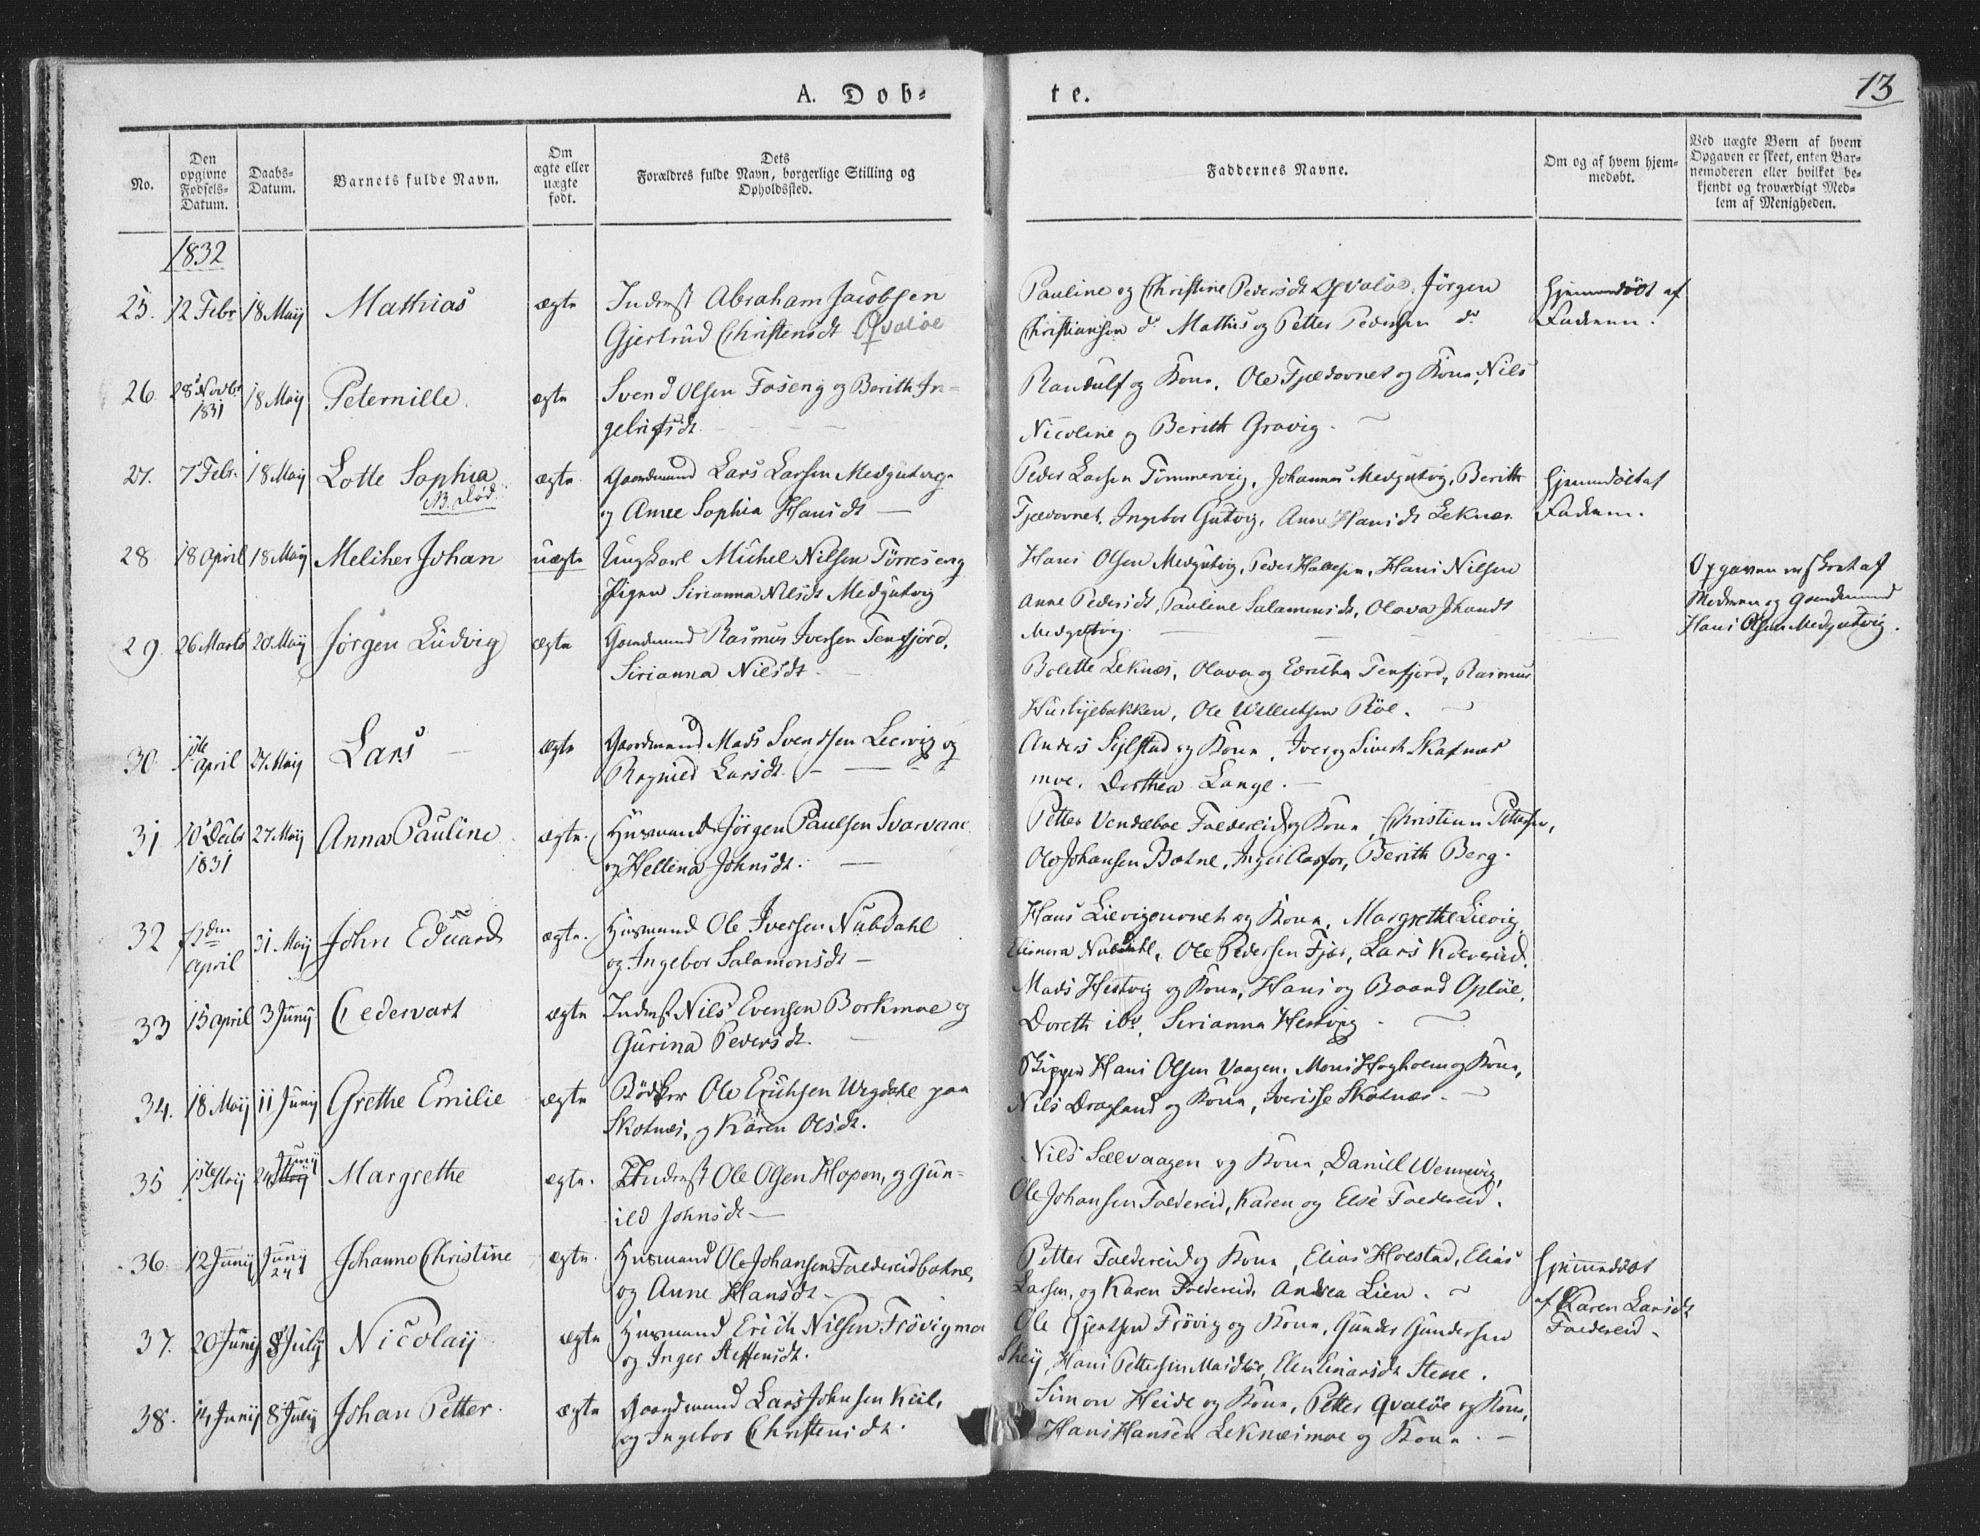 A. Døb-
te.
13
No.
Den opgivne Fødsels-Datum.
Daabs-Datum.
Barnets fulde Navn.
Om ægte eller uægte født.
Dets Forældres fulde Navn, borgerlige Stilling og Opholdssted.
Faddernes Navne.
Om og af hvem hjemmedøbt.
Ved uægte Børn af hvem Opgaven er skeet, enten Barnemoderen eller hvilket bekjendt og troværdigt Medlem af Menigheden.
1832
25. 12 Febr 18 Maij Mathias ægte Inderst Abraham Jacobsen
Gjertrud Christensdt Qvaløe
Pauline og Christine Pedersdt Qvaløe, Jørgen
Christiansen do Mathis og Petter Pedersen do
Hjemmedøbt af
Faderen.
26. 28 Novbr 1831 18 Maij Peternille ægte Svend Olsen Foseng og Berith In-
gebrigtsdt.
Randulf og Kone, Ole Fjeldavnet og Kone, Nils
Nicoline og Berith Gravig.
27. 7 Febr. 18 Maij Lotte Sophia ægte Gaardmand Lars Larsen
NB. død.
og Anne Sophia Hansdt
Peder Larsen Tømmervig, Johannes Medgutvig, Berith
Ingebor Gutvig, Anne Hansdt Leknæs
Hjemmedøbt af
Faderen.
28. 18 April 18 Maij Melcher Johan uægte Ungkarl Michel Nilsen Tørreseng
Pigen Sirianna Nilsdt Medgutvig
Hans Olsen Medgutvig, Peder Hallesen, Hans Nilsen
Anne Pedersdt, Pauline Salamonsdt, Olava
Medgutvig
Opgaven er skeet af
Moderen og Gaardmand
Hans Olsen Medgutvig.
29. 26 Marts 20 Maij Jørgen Ludvig ægte Gaardmand Rasmus Iversen Tenfjord,
Sirianna Nilsdt.
Bolette Leknæs, Olava og Tenfjord, Rasmus
Ole Willutsen Røe.
30. 1ste April 27 Maij Lars ægte Gaardmand Mads Svendsen Lervig og
Ragnild Larsdt.
Anders Sylstad og Kone, Iver og Sivert Skotnes
moe. Dorthea Lange.
31 10 Decbr 1831 27 Maij Anna Pauline ægte. Huusmand Jørgen Paulsen Svarvare
og Hellena Johnsdt.
Petter Vendeboe Foldereid og Kone, Christian Petersen,
Ole Johansen Botne, Inger Aasfor, Berith Berg.
32 April 31 Maij John Eduard ægte. Huusmand Ole Iversen Nubdahl
og Ingebor Salamonsdt
Hans og Kone, Margrethe Lievig,
Nubdahl, Ole Pedersen Fjær, Lars Kolvereid.
33 15 April 3 Juny Cedervart ægte Inderst Nils Evensen Borkmoe og
Gurina Pedersdt.
Mads Hestvig og Kone, Hans og Baard Opløe,
Doreth ibd, Sirianna Hestvig.
34. 18 Maij 11 Juny Grethe Emilie ægte Bødker Ole Erichsen Wegdahl paa
Skotnes, og Karen Olsdt.
Skipper Hans Olsen Vaagen, Mons Hogholem og Kone,
Nils Dragland og Kone, Skotnæs.
35 1ste Maij 24 Juny Margrethe ægte. Inderst Ole Olsen Hopen, og Gun-
ild Johnsdt
Nils Sælvaagen og Kone, Daniel Wennevig,
Ole Johansen Foldereid, Karen og Else Foldereid.
36. 12 Juny Juny 24 Johanne Christine ægte. Huusmand Ole Johansen Foldereidbotne,
og Anne Hansdt
Petter Foldereid og Kone, Elias Holstad, Elias
Larsen, og Karen Foldereid, Andrea Lien.
Hjemmedøbt
af Karen Larsdt
Foldereid
37. 20 Juny 8 July Nicolaij ægte Huusmand Erich Nilsen Frøvigmo
og Inger Steffensdt.
Ole Gjertsen Frøvig og Kone, Gunder Gundersen
Hans Pettersen Elen Einarsdt Stene.
38. 14 Juny 8 July Johan Petter. ægte Gaardmand Lars Johnsen Keil,
og Ingebor Christensdt.
Simon Heide og Kone, Petter Qvaløe og Kone,
Hans Hansen Leknæsmoe og Kone.